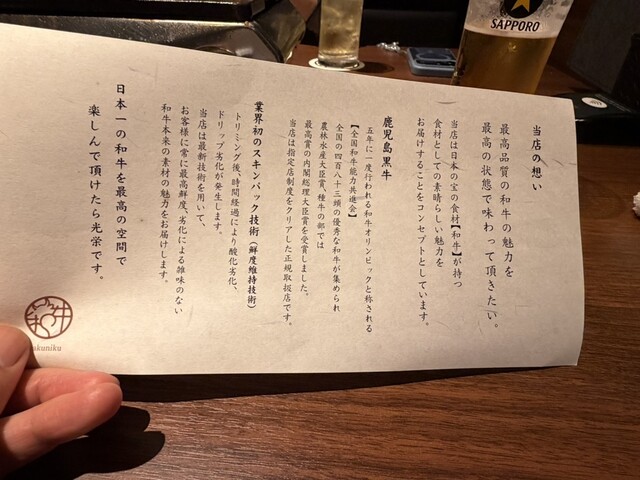 当店の想い
最高品質の和牛の魅力を
最高の状態で味わって頂きたい。
当店は日本の宝の食材【和牛】が持つ
食材としての素晴らしい魅力を
お届けすることをコンセプトとしています。
鹿児島黒牛
五年に一度行われる和牛オリンピックと称される
【全国和牛能力共進会】
全国の四百八十三頭の優秀な和牛が集められ
農林水産大臣賞、種牛の部では
最高賞の内閣総理大臣賞を受賞しました。
当店は指定店制度をクリアした正規取扱店です。
業界初のスキンパック技術（鮮度維持技術）
トリミング後、時間経過により酸化劣化、
ドリップ劣化が発生します。
当店は最新技術を用いて、
お客様に常に最高鮮度、劣化による雑味のない
和牛本来の素材の魅力をお届けします。
日本一の和牛を最高の空間で
楽しんで頂けたら光栄です。
SAPPORO